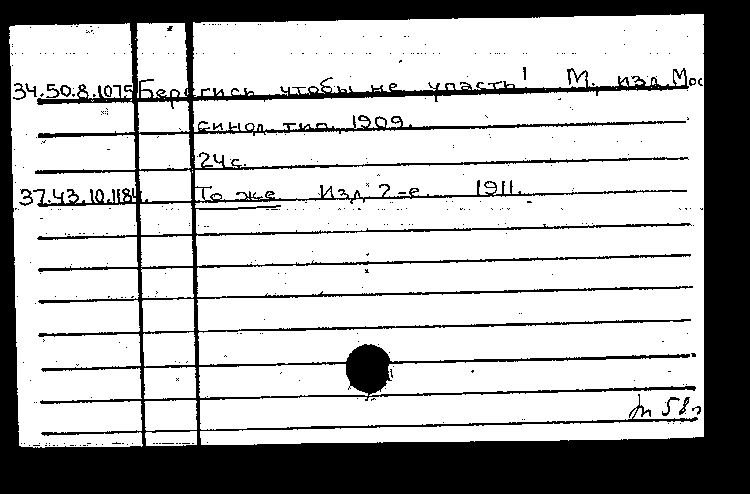 34.50.8.1075 Берегись, чтобы не упасть! М., изд. Мос
синод. тип., 1909.
24 с.
37.43.10.1184. То же Изд. 2-е. 1911.